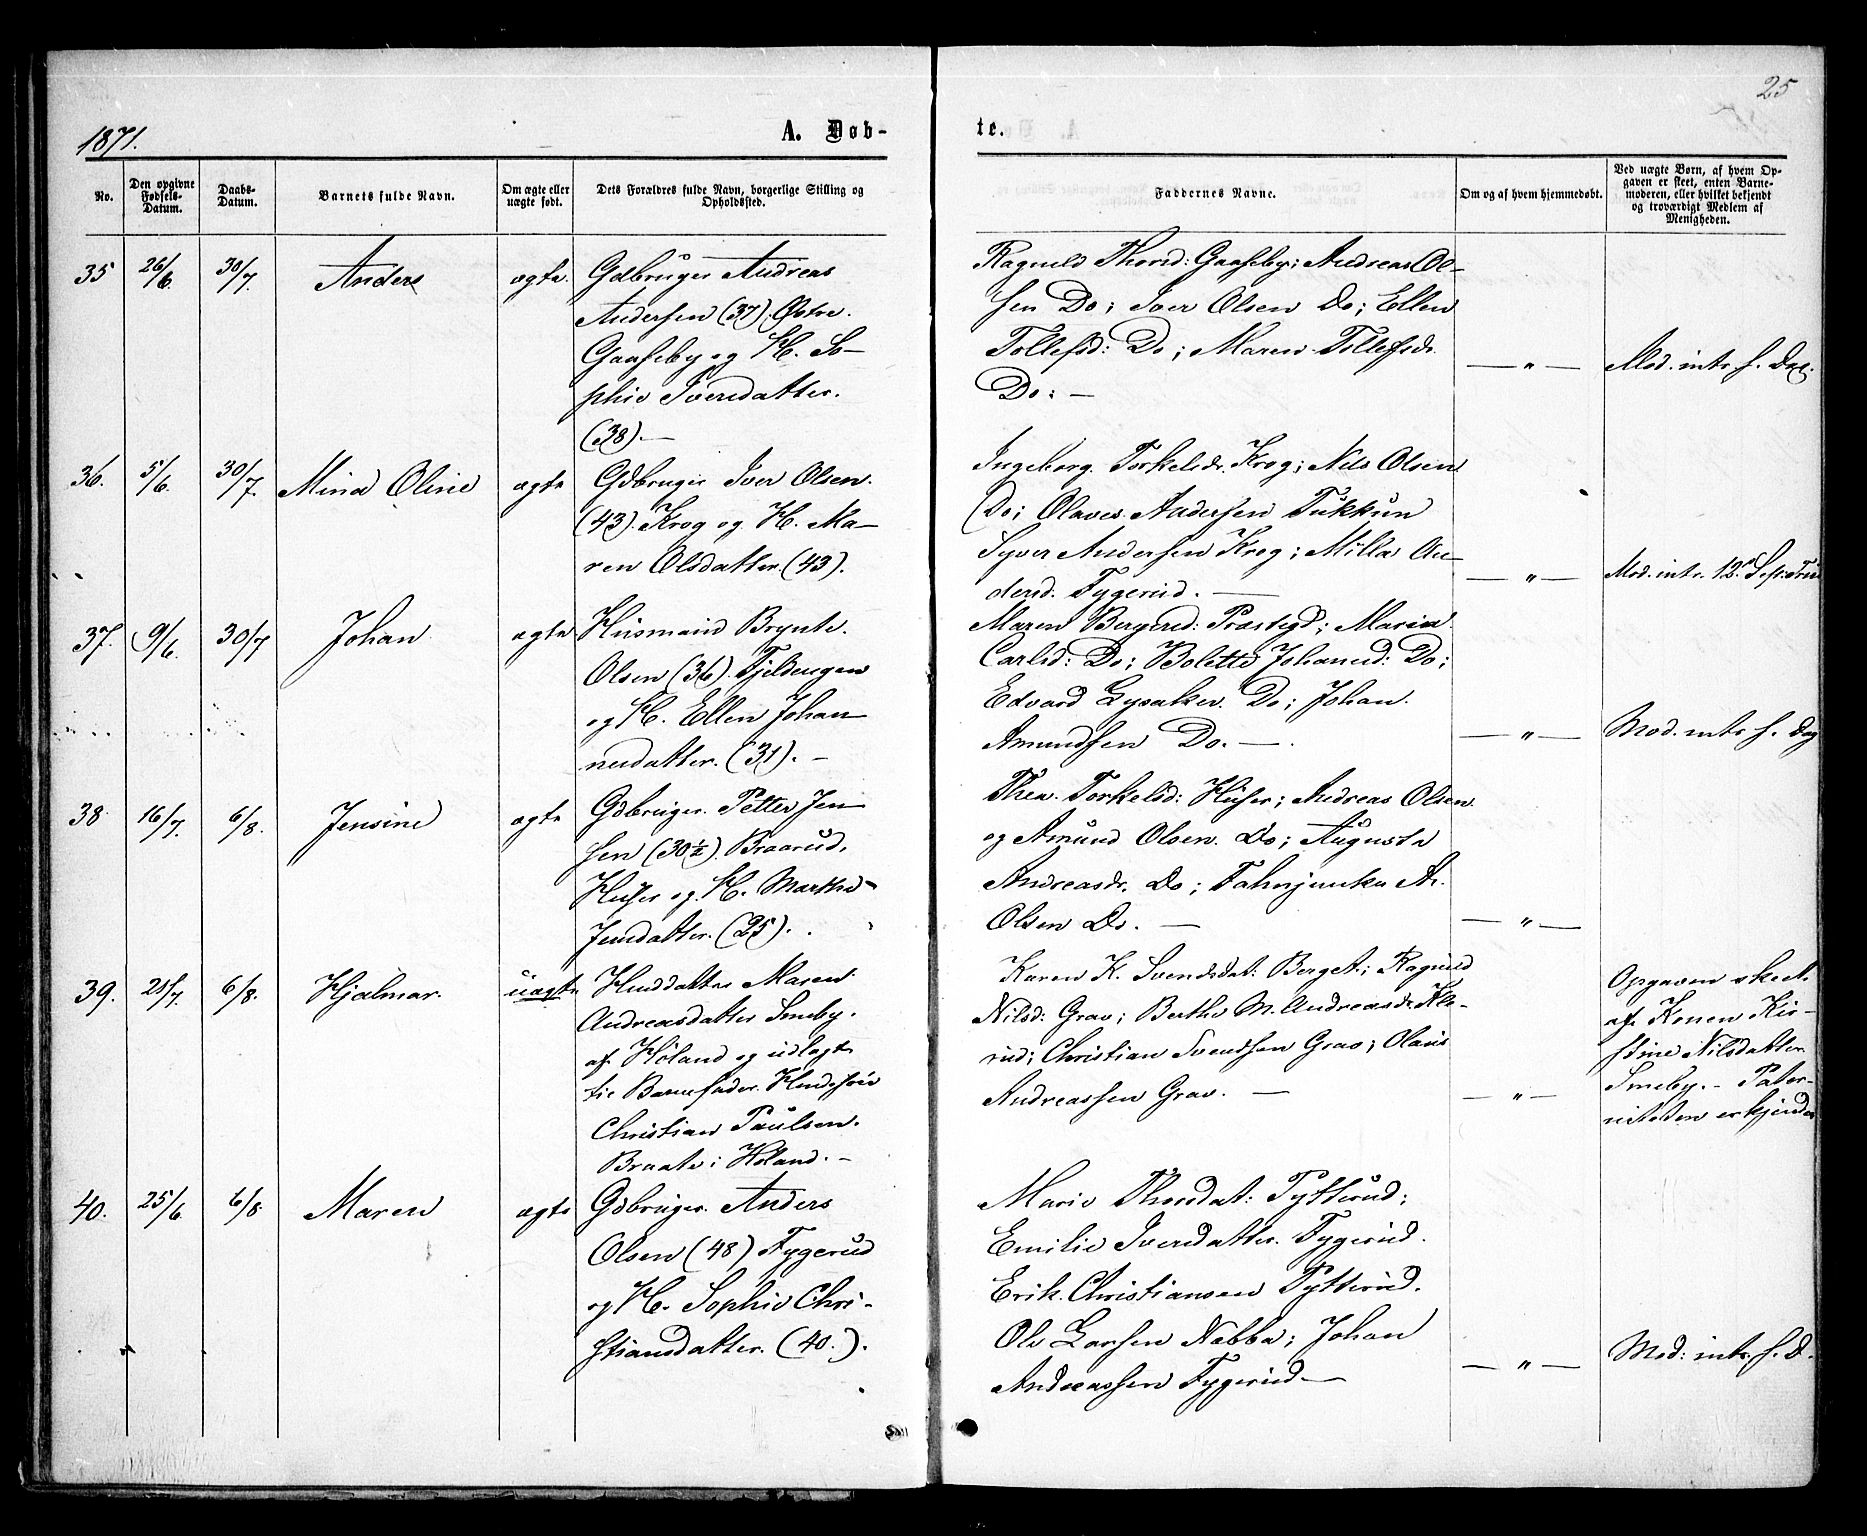 25
1871.
A. Døb-
te.
No.
Den opgivne Fødsels-Datum.
Daabs-Datum.
Barnets fulde Navn.
Om ægte eller uægte født.
Dets Forældres fulde Navn, borgerlige Stilling og Opholdssted.
Faddernes Navne.
Om og af hvem hjemmedøbt.
Ved uægte Børn, af hvem Opgaven er skeet, enten Barnemoderen, eller hvilket bekjendt og troværdigt Medlem af Menigheden.
35 26/6. 30/7. Anders ægte.
Gdbruger Andreas
Andersen (37). Østre.
Gaaseby og H. So-
phie Iversdatter.
(38).—
Ragnild Thorsd: Gaaseby; Andreas Ol-
sen Do; Iver Olsen Do; Ellen
Tollefsd: Do; Maren Tollefsdr.
Do: —
— „ — Mod. intr. s. Dag.
36. 5/6. 30/7. Mina Oline ægte
Gdbruger Iver Olsen.
(43). Krog og H. Ma-
ren Olsdatter. (43).
Ingeborg Torkelsdr. Krog; Nils Olsen
Do; Olaves Andersen Tukkun
Syver Andersen Krog; Milla An-
dersd. Fygerud. —
— „ — Mod. intr. 12.
37. 9/6. 30/7 Johan ægte
Husmand Brynte.
Olsen (36). Fjeldengen
og H. Ellen Johan-
nesdatter. (31). —
Maren Præstegd; Maria
Carlsd: Do; Bolette Johannsd: Do;
Edvard Lysaker. Do; Johan.
Amundsen Do. —
— „ — Mod. intr. s. Dag
38 16/7. 6/8. Jensine ægte
Gdbruger. Petter Jen-
sen (30½). Braarud,
Huser og H. Marthe
Jensdatter. (25).
Thea. Torkelsd: Huser; Andreas Olsen
og Amund Olsen. Do; Augusta
Andreasdr. Do; Fahnjunker A.
Olsen Do. —
— „ —
39. 21/7. 6/8. Hjalmar. uægte
Huusdatter Maren
Andreasdatter Smeby.
af Høland og udlagt
til Barnefader.
Christian Paulsen.
Braate i Høland. —
Karen K. Svendsdat: Berget; Ragnild
Nilsd: Grav; Berthe M. Andreasdr. Kle-
rud; Christian Svendsen Grav; Olaus
Andreassen Grav. —
— „ —
Opgaven skeet
af Konen Kir-
stine Nilsdatter
Smeby. — Pater-
niteten erkjendes
40. 25/6. 6/8 Maren ægte
Gdbruger. Anders
Olsen (48) Fygerud
og H. Sophie Chri-
stiansdatter. (40.).
Marie Thorsdat: Pytterud;
Emilie Iversdatter. Fygerud.
Erik. Christiansen Pytterud.
Ole Larsen Nabba; Johan
Andreassen Fygerud —
— „ — Mod: intr. s. D.